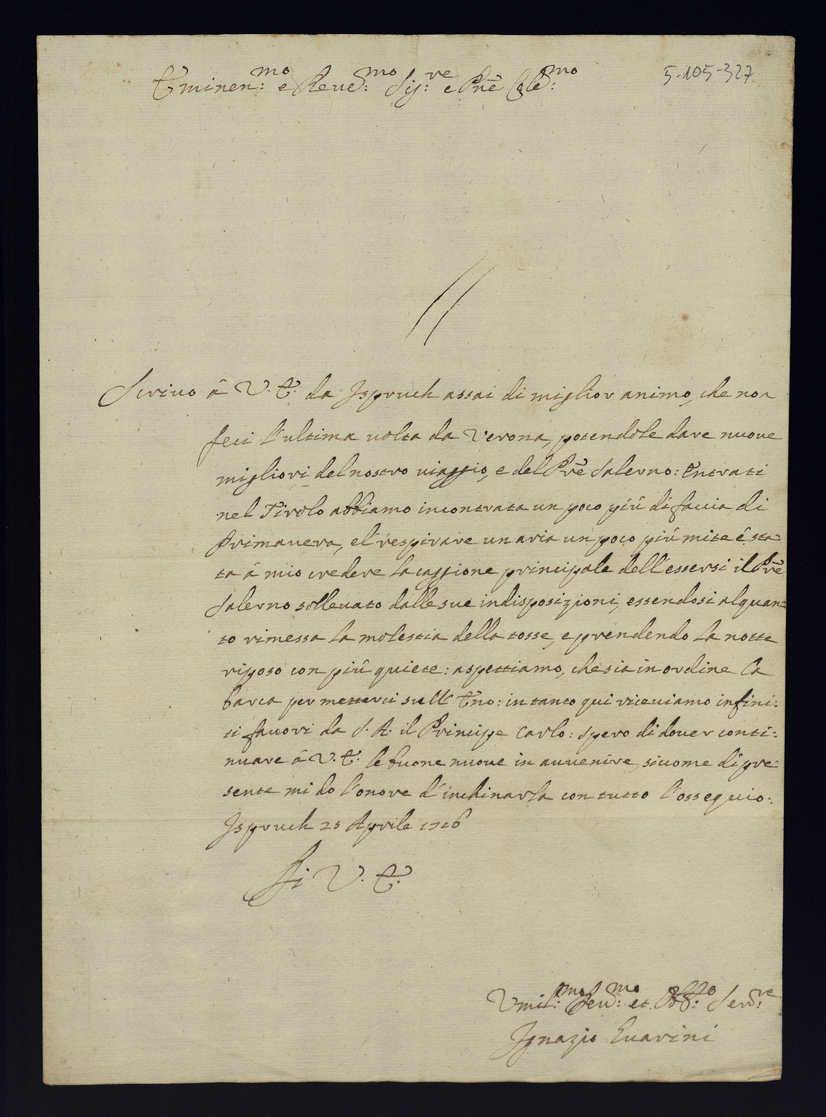 Eminen:mo e Reve:mo Sig:re e Pn̄e Col:mo
5-105-327
Scrivo â V. E. da Jspruch assai di miglior animo, che non
feci l'ultima volta da Verona, potendole dare nuove
migliori del nostro viaggio, e del Pr̄e Salerno: Entrati
nel Tirolo abbiamo incontrata un poco piû di faccia di
Primavera, el respirare un aria un poco piû mite ê sta-
ta â mio credere la caggione principale dell'essersi il Pr̄e
Salerno sollevato dalle sue indisposizioni, essendosi alquan-
to rimessa la molestia della tosse, e prendendo la notte
riposo con piû quiete: aspettiamo, che sia in ordine la
barca per metterci sull'Eno: in tanto qui riceviamo infini:
ti favori da S. A. il Principe Carlo: spero di dover conti:
nuare â V. E. le buone nuove in avvenire, siccome di pre-
sente mi do l'onore d'inchinarla con tutto l'ossequio.
Jspruch 28 Aprile 1716
Di V. E.
Umil:mo Dev:mo et Obb:mo Serv:re
Ignazio Guarini